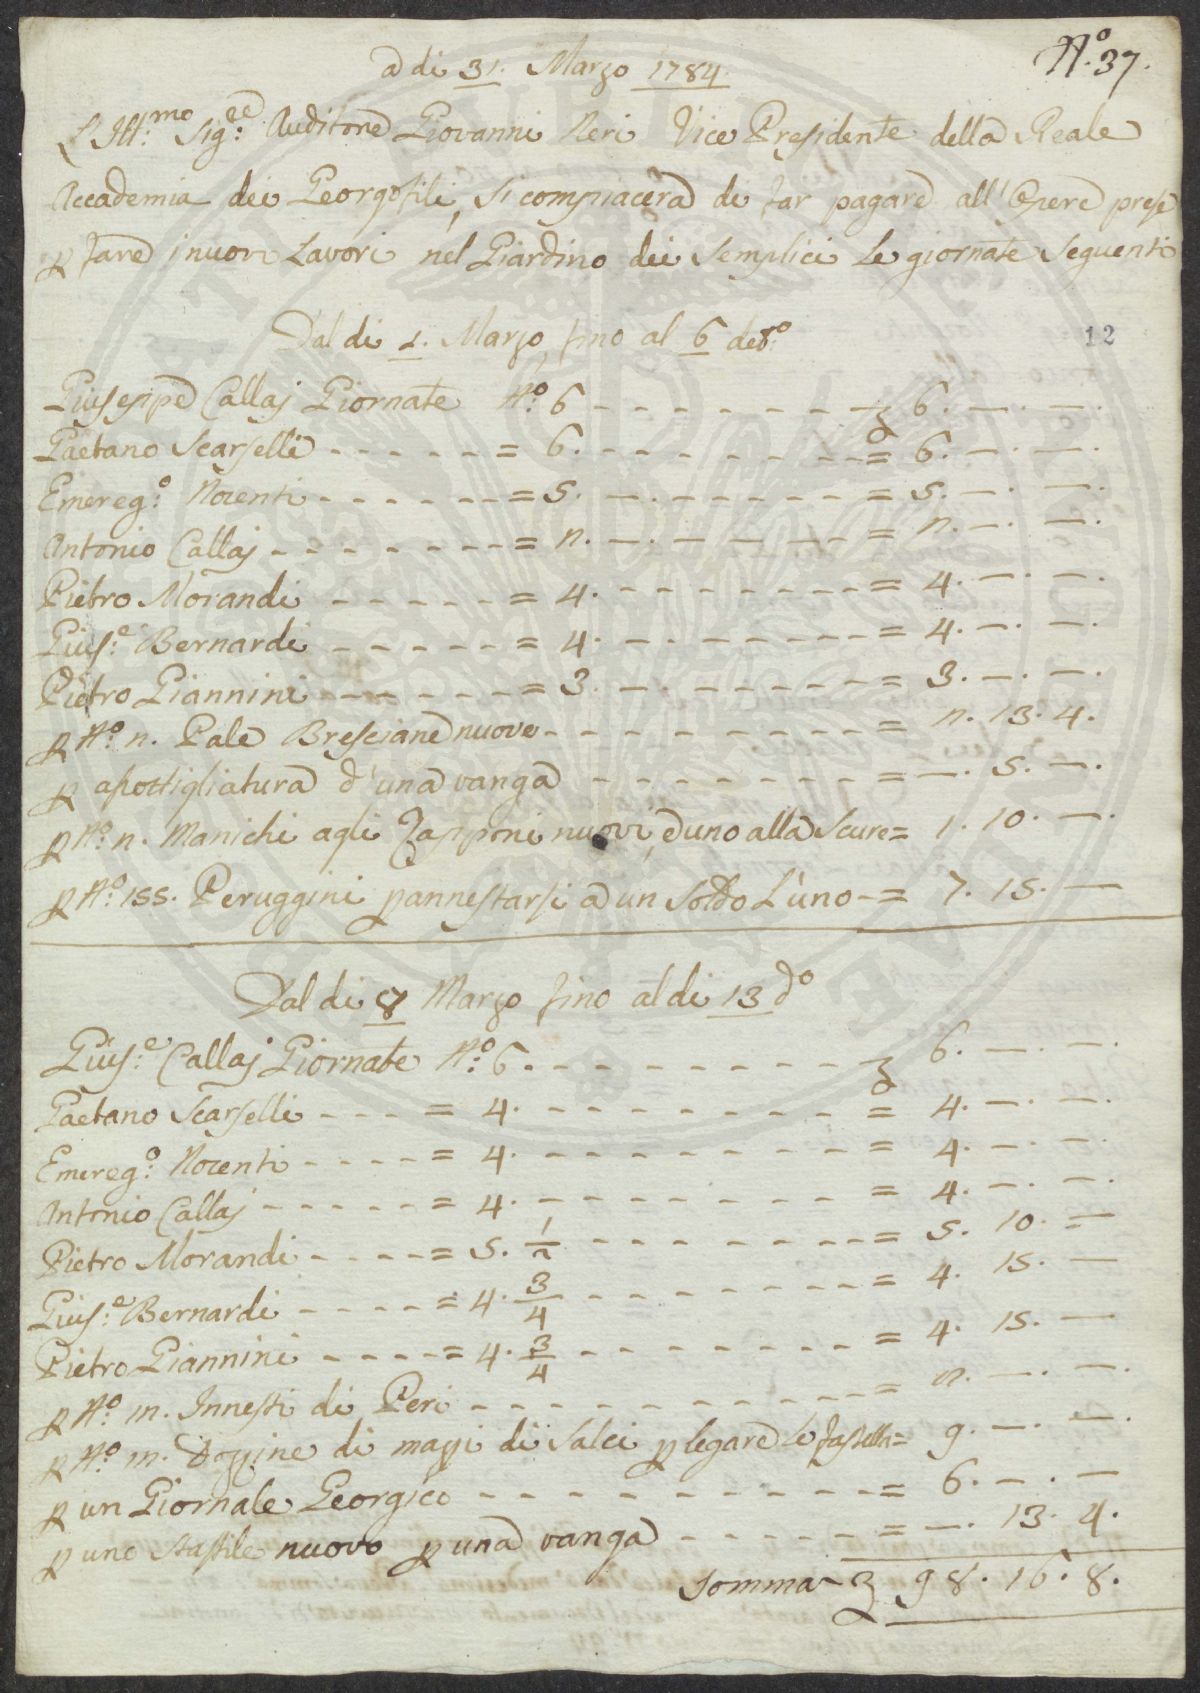 Nº. 37.
a di 31. Marzo 1784.
L'Ill:mo Sig:re Auditore Giovanni Neri Vice Presidente della Reale
Accademia dei Georgofili, si compiacerà di far pagare all'Opere prese
p fare i nuovi Lavori nel Giardino dei Semplici le giornate seguenti
12
Dal di 1. Marzo fino al 6 detº
Giuseppe Callaj Giornate Nº: 6 - - - - - - - - ʒ 6. —. —.
Gaetano Scarselli - - - - - = 6. - - - - - - - - = 6. —. —.
Emereg:º Nocenti - - - - - - = 5. —. - - - - - - = 5. —. —.
Antonio Callaj - - - - - - - = 2. —. — - - - - = 2. —. —.
Pietro Morandi - - - - - = 4. - - - - - - - - = 4. —. —.
Gius:e Bernardi - - - - - = 4. - - - - - - - - = 4. —. —.
Pietro Giannini - - - - - - = 3. —. - - - - - - = 3. —. —.
p Nº 2. Pale Bresciane nuove - - - - - - - - = 2. 13. 4.
p apostigliatura d'una vanga - - - - - - - = —. 5. —.
p Nº: 2. Manichi agli Zapponi nuovi, e uno alla Scure = 1. 10. —.
p Nº 155. Peruggini p annestarsi a un Soldo L'uno - = 7. 15. —
Dal di 8 Marzo fino al di 13 dº
Gius:e Callaj Giornate Nº: 6. - - - - - - - - ʒ 6. —. —.
Gaetano Scarselli - - - - = 4. - - - - - - - - = 4. —. —.
Emereg:º Nocenti - - - - = 4. - - - - - - - - = 4. —. —.
Antonio Callaj - - - - - - = 4. - - - - - - - - = 4. —. —.
Pietro Morandi - - - - = 5. 1/2 - - - - - - - - = 5. 10. —
Gius:e Bernardi - - - - - = 4. 3/4 - - - - - - - = 4. 15. —
Pietro Giannini - - - - = 4. 3/4 - - - - - - - = 4. 15. —
p Nº 12. Innesti di Peri - - - - - - - - - - = 2. —. —.
p Nº 12. Dozzine di mazzi di Salci p legare le = 9. —. —.
p un Giornale Georgico - - - - - - - - - - = 6. —. —
p uno Stastile nuovo p una vanga - - - - - = —. 13. 4.
Somma ʒ 98. 16. 8.